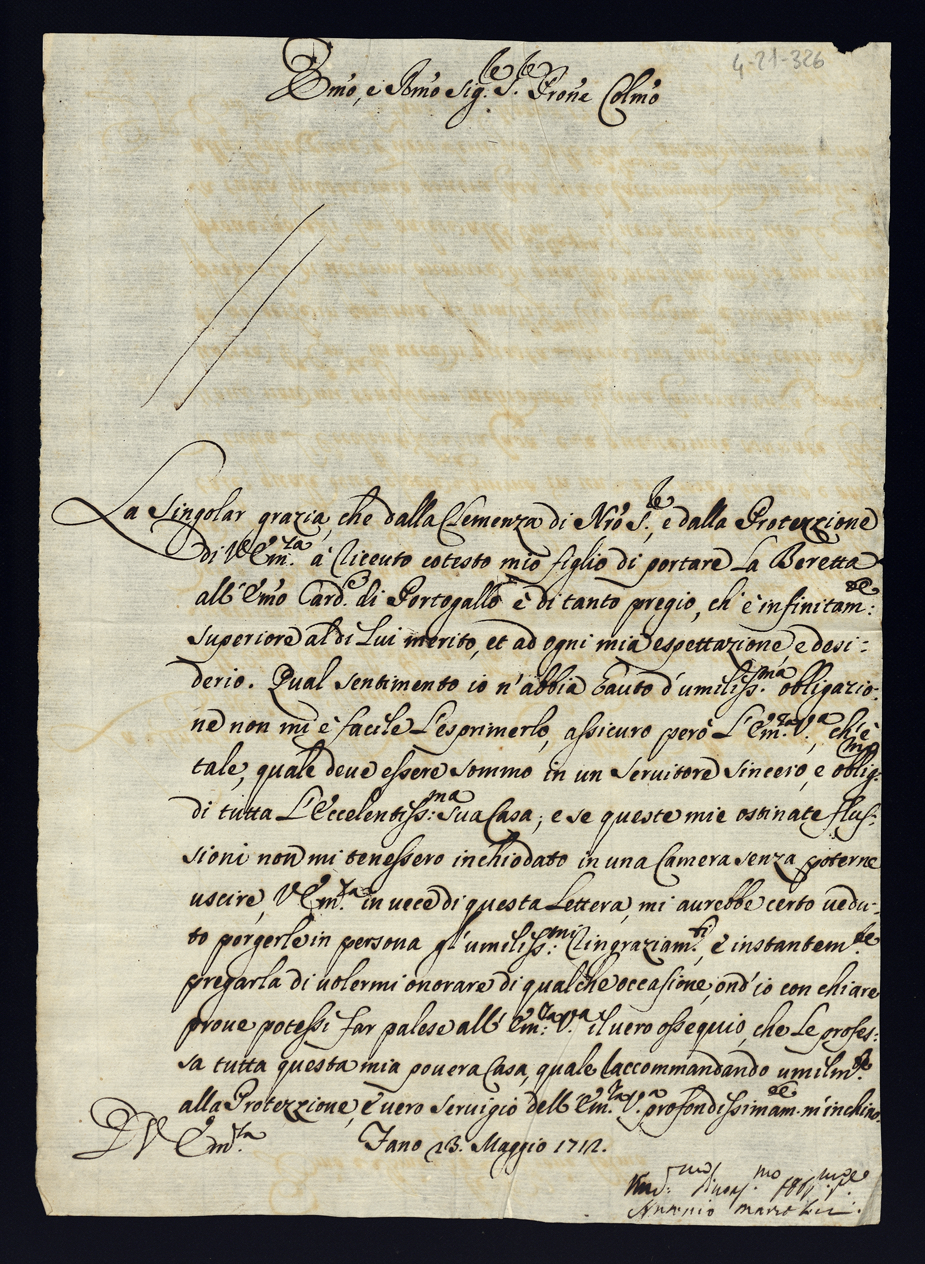 4-21-326
Emo, e Rmo Sig.re S.re Prone Colmo
La singolar grazia, che dalla Clemenza di Nro S.re, e dalla Protezzione
di V. Em.za à riceuto cotesto mio figlio di portare La Beretta
all'Emo Card.e di Portogallo è di tanto pregio, ch'è infinitam:te
superiore al di Lui merito, et ad ogni mia espettazione, e desi-
derio. Qual sentimento io n'abbia hauto d'umiliss.ma obligazio-
ne non mi è facile L'esprimerlo, assicuro però L'Em.za V.a, ch'è
tale, quale deve essere sommo in un servitore sincero, e oblig.mo
di tutta L'Eccelentiss:ma sua Casa; e se queste mie ostinate flus-
sioni non mi tenessero inchiodato in una Camera senza poterne
uscire, V. Em.za in uece di questa Lettera, mi aurebbe certo vedu-
to porgerle in persona gl'umiliss:mi ringraziam.ti, e instantem.te
pregarla di uolermi onorare di qualche occasione, ond'io con chiare
proue potessi far palese all'Em:za V.a il uero ossequio, che Le profes-
sa tutta questa mia pouera Casa, quale raccommandando umilm.te
alla Protezzione, e uero seruigio dell'Em.za V.a profondissimam.te m'inchino.
D V Em.za Fano 13. Maggio 1712.
Um.mo Diuot.mo
Antonio Maria